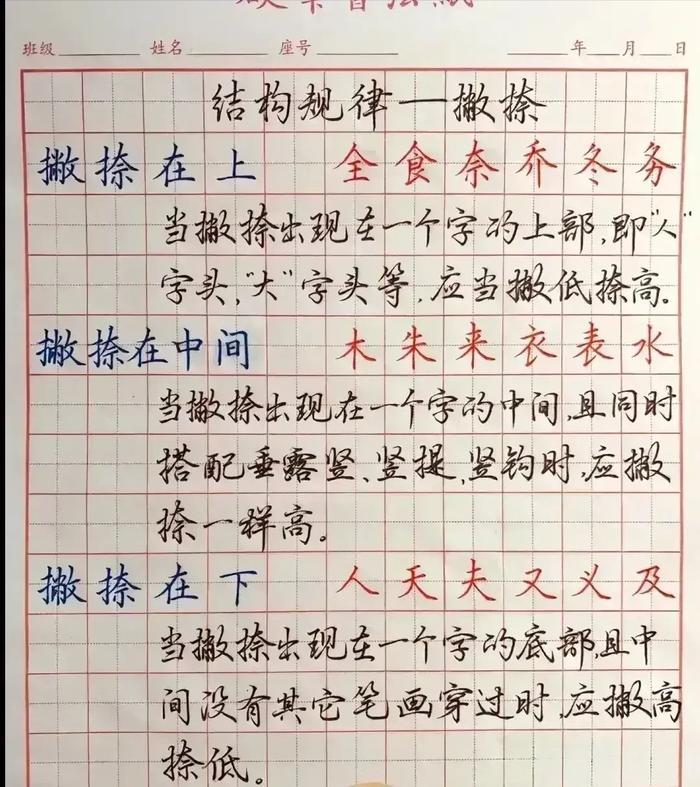 硬笔书法纸
班级 姓名 座号 年 月 日
结构规律——撇捺
撇捺在上 全食奈乔冬务
当撇捺出现在一个字的上部,即"人"
字头,"大"字头等,应当撇低捺高。
撇捺在中间 木朱来衣表水
当撇捺出现在一个字的中间,且同时
搭配垂露竖、竖提、竖钩时,应撇
捺一样高。
撇捺在下 人天夫又义及
当撇捺出现在一个字的底部,且中
间没有其它笔画穿过时,应撇高
捺低。